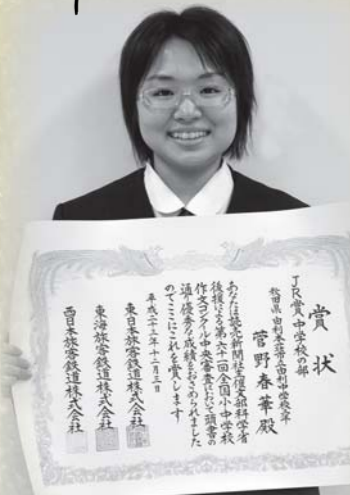 賞状
JR賞 中学校の部
秋田県 由利本荘市立由利中学校三年
菅野春華殿
あなたは読売新聞社主催文部科学省
後援による第六十一回全国小中学校
作文コンクール中央審査において頭書の
通り優秀な成績をおさめられました
のでここにこれを賞します
平成二十三年十二月三日
東日本旅客鉄道株式会社
東海旅客鉄道株式会社
西日本旅客鉄道株式会社